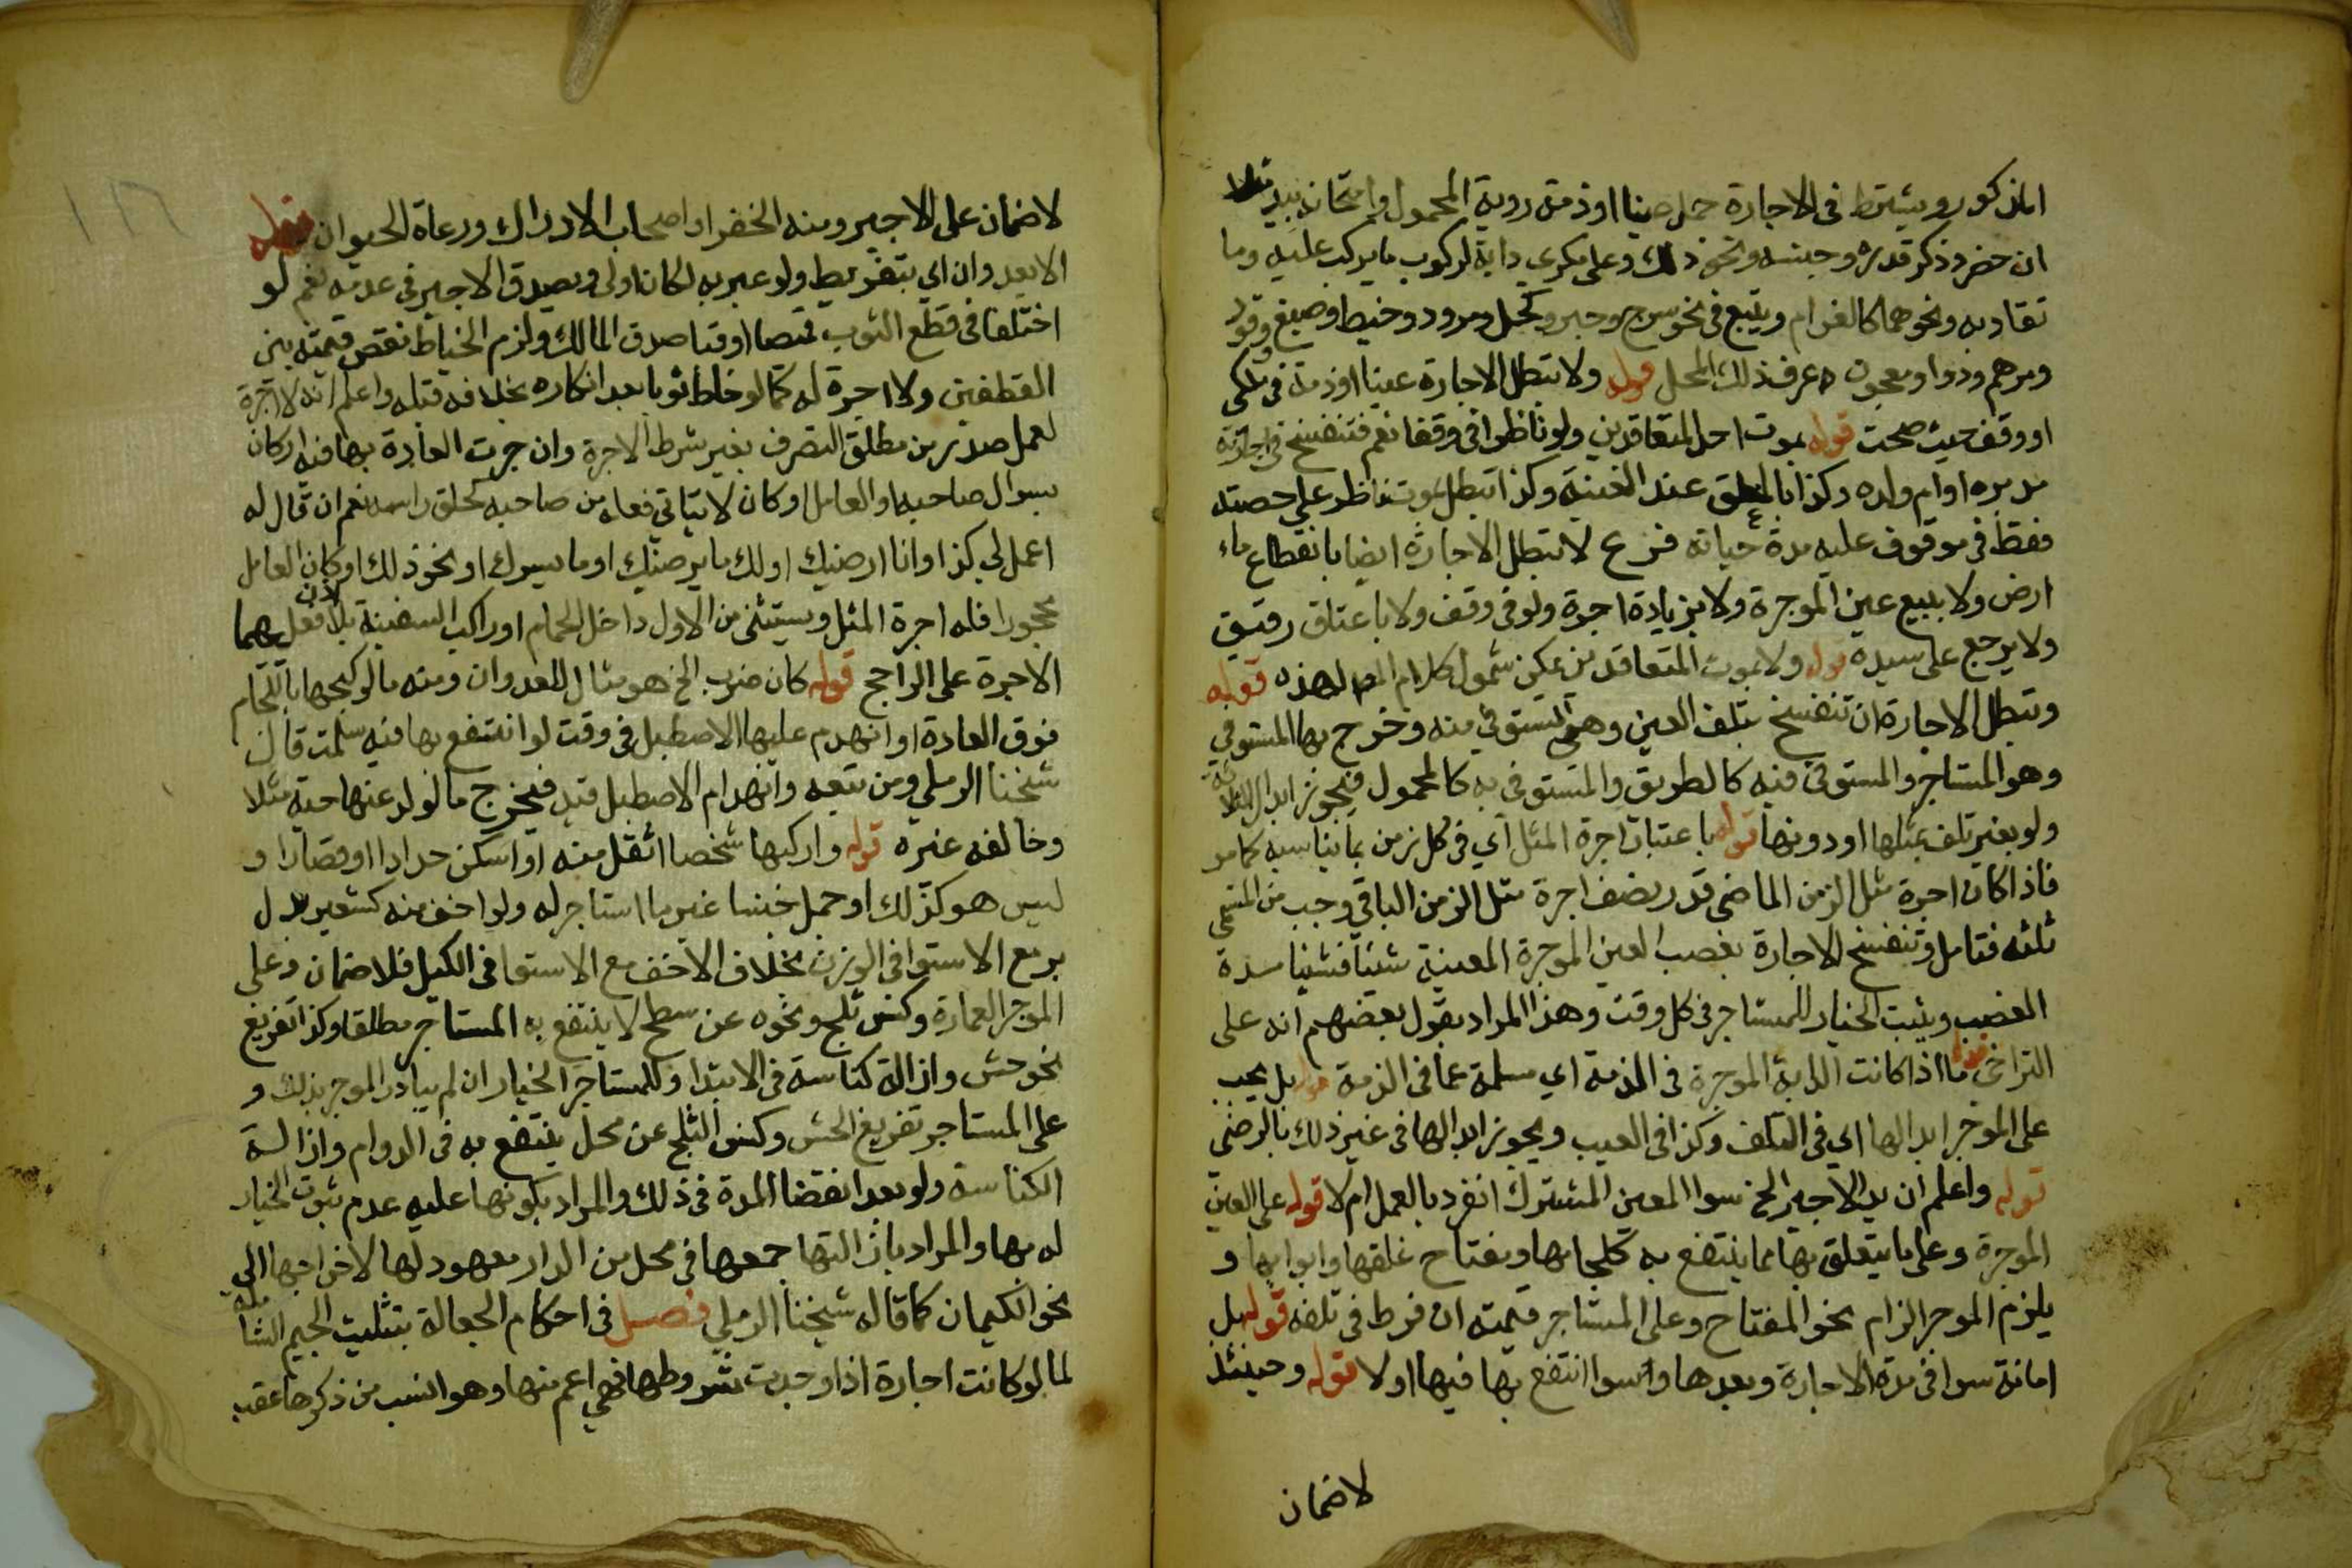 المذكور ويشترط في الاجارة حمل عينا او ذمة روية المحمول وامتحانه بيد مثلا
ان حضر وذكر قدره وجنسه ونحو ذلك وعلى مكري دابة لركوب ما يركب عليه وما
تقاد به ونحوهما كالغرام ويتبع في نحو سرج وحبر وكحل ومرود وخيط وصبغ وقود
ومرهم ودوا ومعجون عرف ذلك المحل قوله ولا تبطل الاجارة عينا او ذمة في ملكي
او وقف حيث صحت قوله بموت احد المتعاقدين ولو ناظرا في وقفا نعم فتنفسخ في اجارته
مدبره او ام ولده وكذا بالمعلق عند الغيبة وكذا تبطل بموت ناظر على حصته
فقط في موقوف عليه مدة حياته فرع لا تبطل الاجارة ايضا بانقطاع ماء
ارض ولا ببيع عين الموجرة ولا بزيادة اجرة ولو في وقف ولا باعتاق رقيق
ولا يرجع على سيده قوله ولا بموت المتعاقدين يمكن شمول كلام المص لهذه قوله
وتبطل الاجارة ان تنفسخ بتلف العين وهو المستوفي منه وخرج بها المستوفي
وهو المستاجر والمستوفى فيه كالطريق والمستوفى به كالمحمول فيجوز ابدال الثلاثة
ولو بغير تلف بمثلها او دونها قوله باعتبار اجرة المثل اي في كل زمن بما يناسبه كما مر
فاذا كان اجرة مثل الزمن الماضي قدر نصف اجرة مثل الزمن الباقي وجب من المسمى
ثلثه فتامل وتنفسخ الاجارة بغصب العين الموجرة المعينة شيئا فشيئا مدة
الغصب ويثبت الخيار للمستاجر في كل وقت وهذا المراد بقول بعضهم انه على
التراخي قوله ما اذا كانت الدابة الموجرة في الذمة اي مسلمة عما في الذمة قوله بل يجب
على الموجر ابدالها اي في التلف وكذا في العيب ويجوز ابدالها في غير ذلك بالرضى
قوله واعلم ان يد الاجير الخ سوا المعين المشترك انفرد بالعمل ام لا قوله على العين
الموجرة وعلى ما يتعلق بها مما ينتفع به كلجامها ومفتاح غلقها وابوابها و
يلزم الموجر الزام نحو المفتاح وعلى المستاجر قيمته ان فرط في تلفه قوله بل
امانة سوا في مدة الاجارة وبعدها وسوا انتفع بها فيها او لا قوله وحينئذ
لا ضمان
لا ضمان على الاجير ومنه الخفرا واصحاب الادراك ورعاة الحيوان قوله
الا بعدوان اي بتفريط ولو عبر به لكان اولى ويصدق الاجير في عدمه نعم لو
اختلفا في قطع الثوب قميصا او قبا صدق المالك ولزم الخياط نقص قيمته بين
القطعين ولا اجرة له كما لو خاط ثوبا بعد انكاره بخلافه قبله واعلم انه لا اجرة
لعمل صدر من مطلق التصرف بغير شرط الاجرة وان جرت العادة بها فيه او كان
بسوال صاحبه او العامل او كان لا يتاتي فعله من صاحبه كحلق راسه نعم ان قال له
اعمل لي كذا وانا ارضيك او لك ما يرضيك او ما يسرك او نحو ذلك او كان العامل
محجورا فله اجرة المثل ويستثنى من الاول داخل الحمام او راكب السفينة بلا اذن فعليهما
الاجرة على الراجح قوله كان ضرب الخ هو مثال للعدوان ومنه ما لو كبحها باللجام
فوق العادة او انهدم عليها الاصطبل في وقت لو انتفع بها فيه سلمت قال
شيخنا الرملي ومن تبعه وانهدام الاصطبل قيد فيخرج ما لو لدغتها حية مثلا
وخالفه غيره قوله واركبها شخصا اثقل منه او اسكن حدادا او قصارا و
ليس هو كذلك او حمل جنسا غير ما استاجر له ولو اخف منه كشعير بدل
بر مع الاستوا في الوزن بخلاف الاخف مع الاستوا في الكيل فلا ضمان وعلى
الموجر العمارة وكنس ثلج ونحوه عن سطح لا ينتفع به المستاجر مطلقا وكذا تفريغ
نحو حش وازالة كناسة في الابتدا وللمستاجر الخيار ان لم يبادر الموجر بذلك و
على المستاجر تفريغ الحش وكنس الثلج عن محل ينتفع به في الدوام وازالة
الكناسة ولو بعد انقضا المدة في ذلك والمراد بكونها عليه عدم ثبوت الخيار
له بها والمراد بازالتها جمعها في محل من الدار معهود لها لا اخراجها الى
نحو الكيمان كما قاله شيخنا الرملي فصل في احكام الجعالة بتثليث الجيم الشاملة
لما لو كانت اجارة اذا وجدت شروطها فهي اعم منها وهو انسب من ذكرها عقب